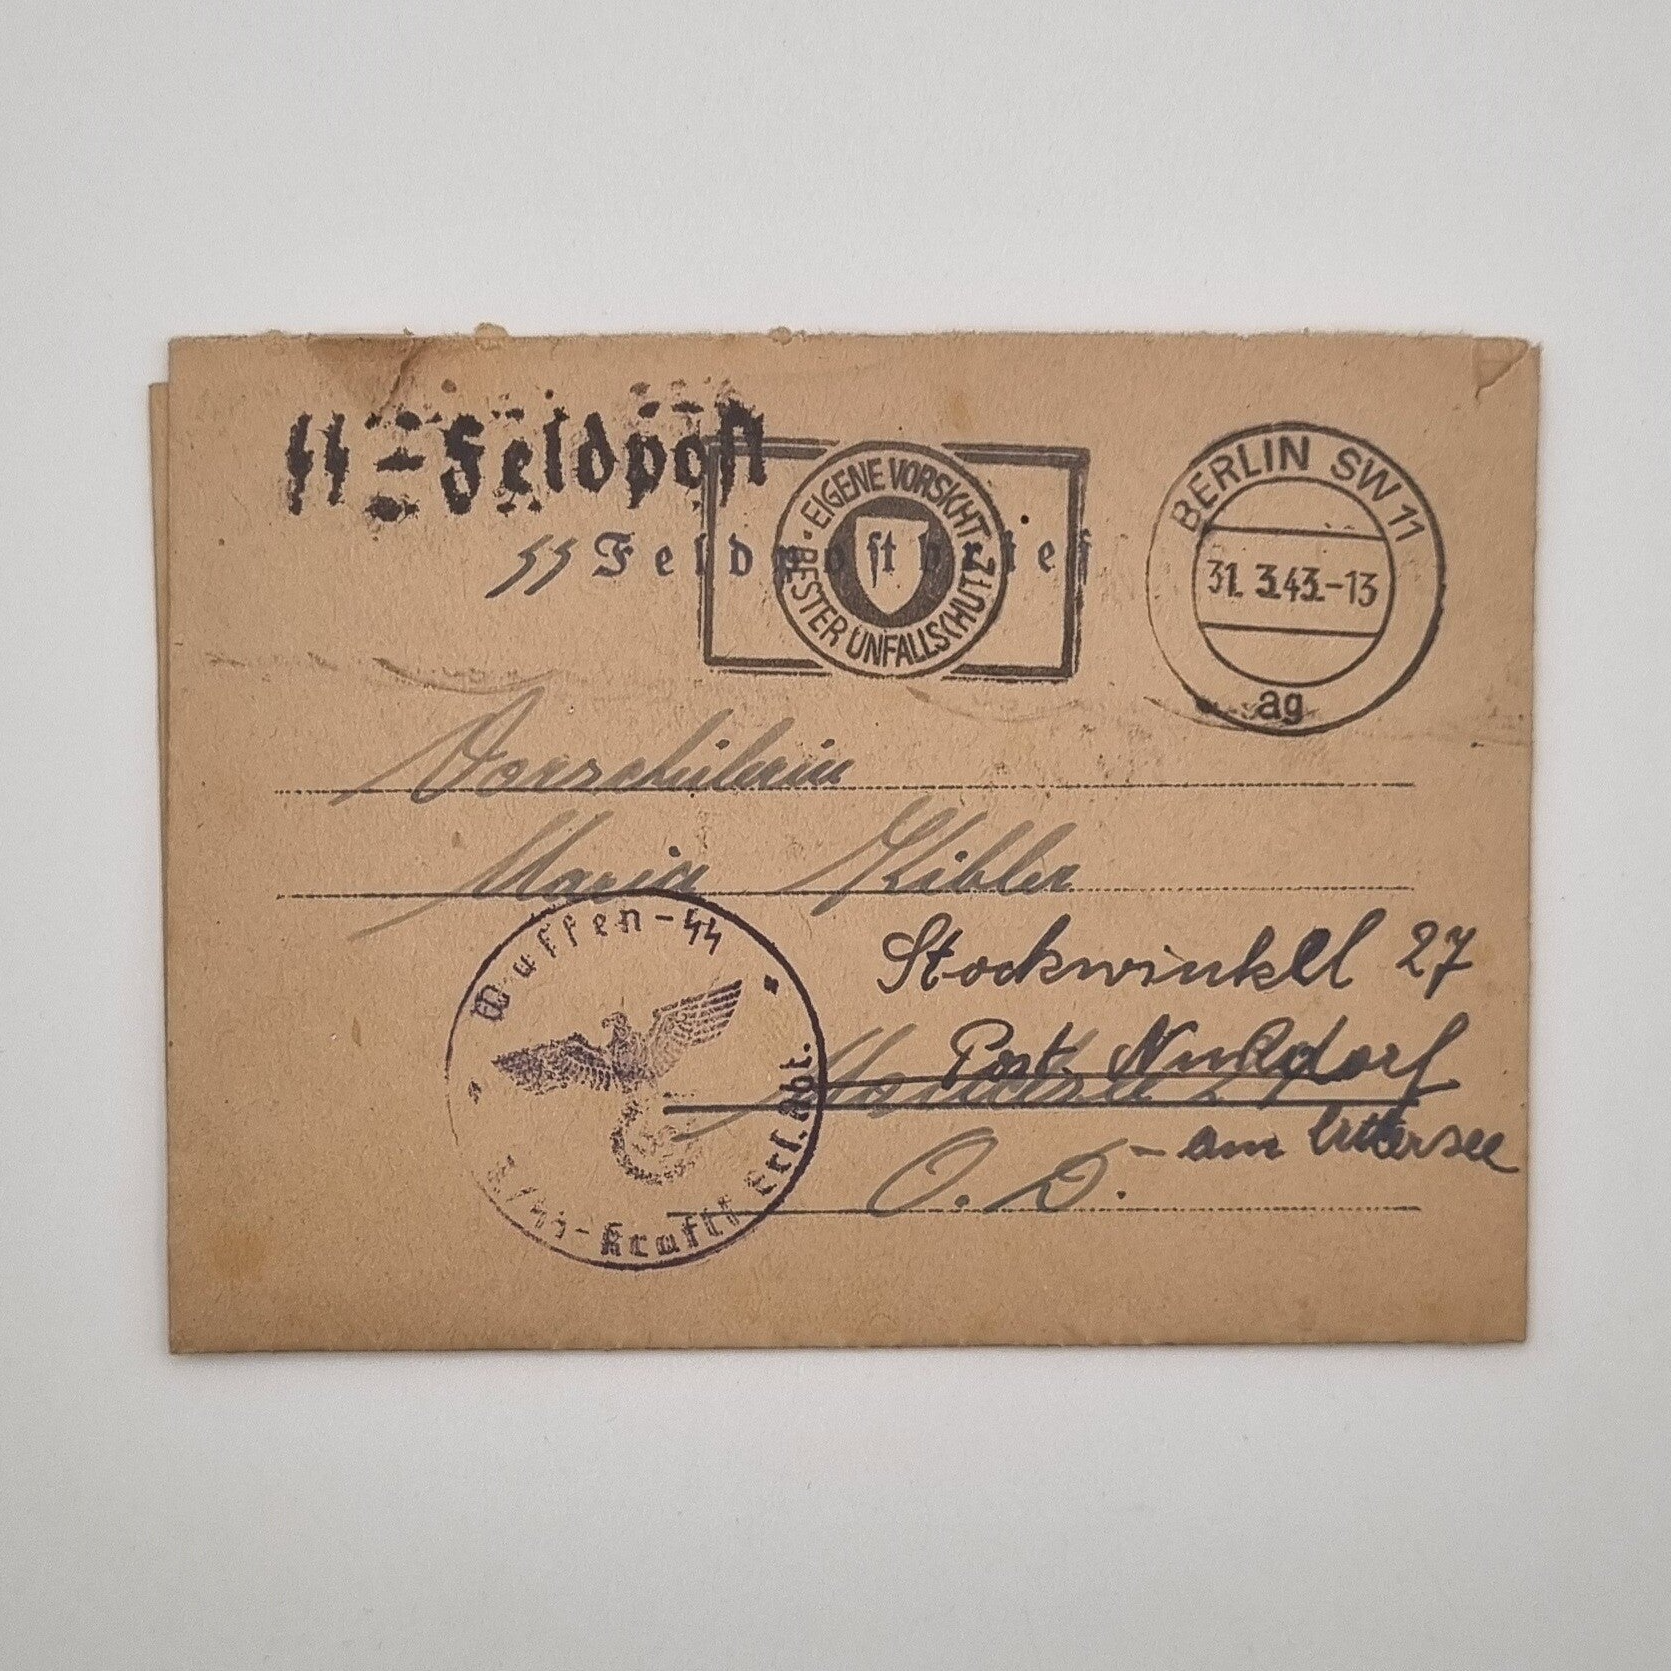 SS-Feldpost
SS Feldpostbrief
EIGENE VORSICHT
BESTER UNFALLSCHUTZ
BERLIN SW 11
31. 3.43.-13
ag
Vorschülerin
Maria Kibler
Stockwinkel 27
Post Nußdorf
am Attersee
O. D.
Waffen-SS
SS-Kraftf. Ers. Abt.